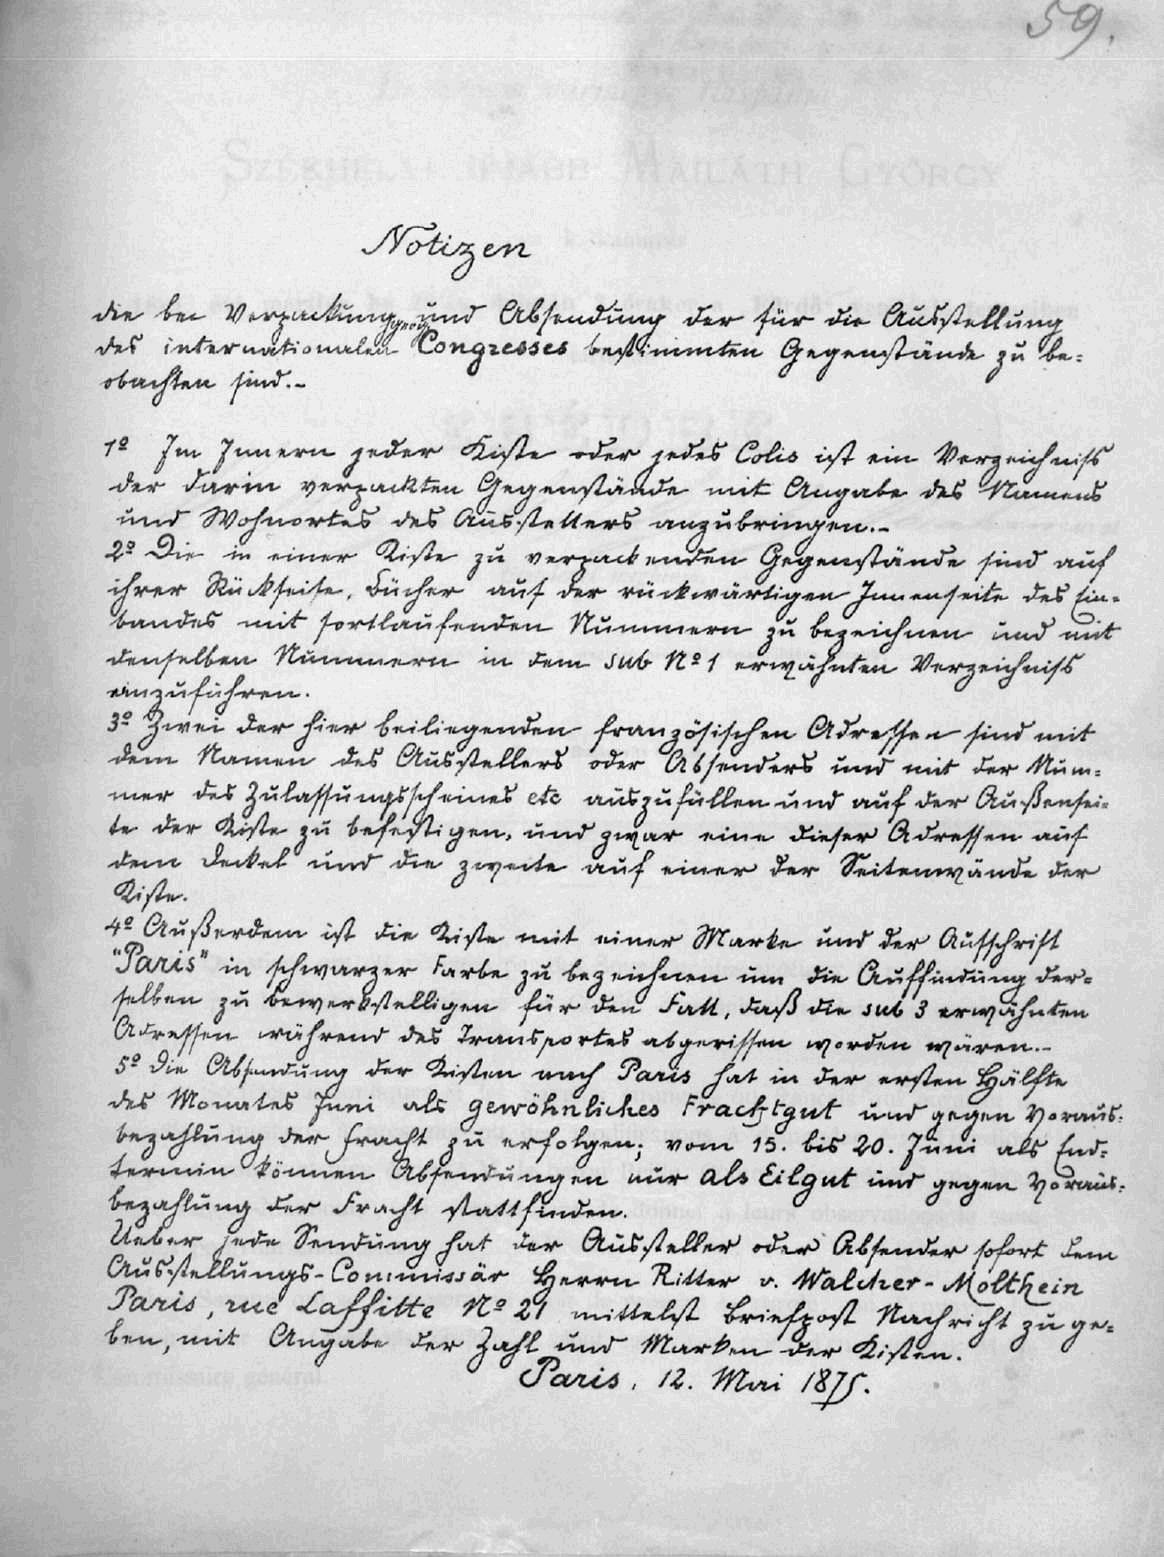 59.
Notizen
die bei Verpackung und Absendung der für die Ausstellung
des internationalen geog. Congresses bestimmten Gegenstände zu be-
obachten sind.-
1º Im Innern jeder Kiste oder jedes Colis ist ein Verzeichniss
der darin verpackten Gegenstände mit Angabe des Namens
und Wohnortes des Ausstellers anzubringen.-
2º Die in einer Kiste zu verpackenden Gegenstände sind auf
ihrer Rückseite, Bücher auf der rückwärtigen Innenseite des Ein-
bandes mit fortlaufenden Nummern zu bezeichnen und mit
denselben Nummern in dem sub Nº 1 erwähnten Verzeichniss
anzuführen.
3º Zwei der hier beiliegenden französischen Adressen sind mit
dem Namen des Ausstellers oder Absenders und mit der Num-
mer des Zulassungsscheines etc auszufüllen und auf der Außensei-
te der Kiste zu befestigen, und zwar eine dieser Adressen auf
dem Deckel und die zweite auf einer der Seitenwände der
Kiste.
4º Außerdem ist die Kiste mit einer Marke und der Aufschrift
"Paris" in schwarzer Farbe zu bezeichnen um die Auffindung der-
selben zu bewerkstelligen für den Fall, daß die sub 3 erwähnten
Adressen während des Transportes abgerissen worden wären.-
5º Die Absendung der Kisten nach Paris hat in der ersten Hälfte
des Monates Juni als gewöhnliches Frachtgut und gegen Voraus-
bezahlung der Fracht zu erfolgen; vom 15. bis 20. Juni als End-
termin können Absendungen nur als Eilgut und gegen Voraus-
bezahlung der Fracht stattfinden.
Ueber jede Sendung hat der Aussteller oder Absender sofort dem
Ausstellungs-Commissär Herrn Ritter v. Walcher-Molthein
Paris, rue Laffitte Nº 21 mittelst Briefpost Nachricht zu ge-
ben, mit Angabe der Zahl und Marken der Kisten.
Paris, 12. Mai 1875.